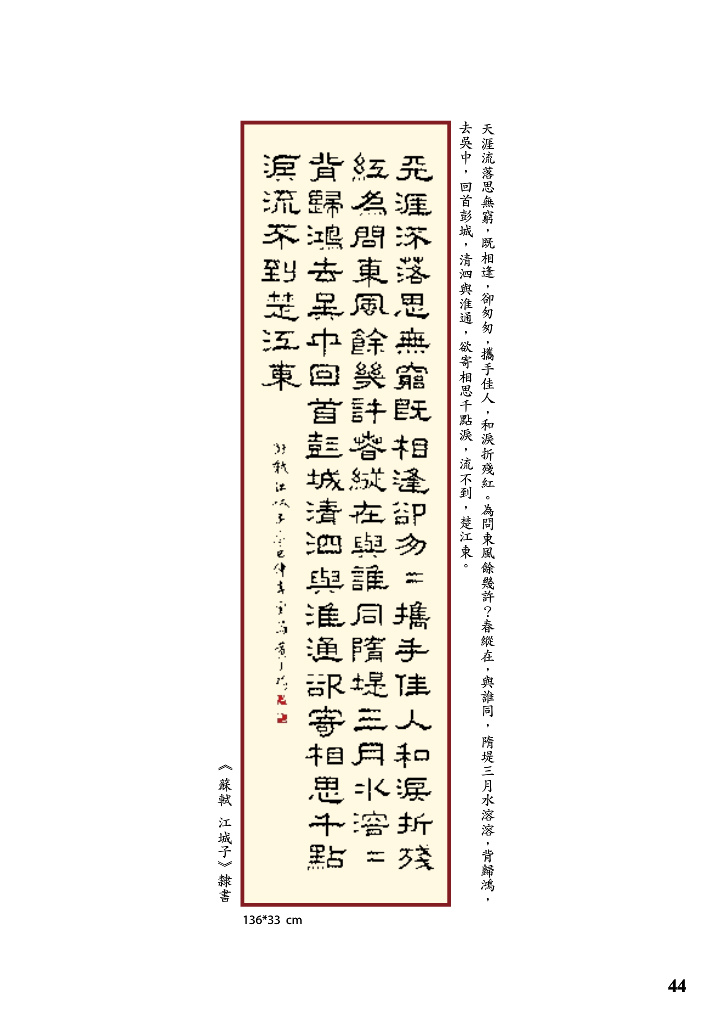 天涯流落思無窮，既相逢，卻匆匆，攜手佳人，和淚折殘紅。為問東風餘幾許？春縱在，與誰同，隋堤三月水溶溶，背歸鴻，
去吳中，回首彭城，清泗與淮通，欲寄相思千點淚，流不到，楚江東。
天涯流落思無窮既相逢卻匆＝攜手佳人和淚折殘
紅為問東風餘幾許春縱在與誰同隋堤三月水溶＝
背歸鴻去吳中回首彭城清泗與淮通欲寄相思千點
淚流不到楚江東
《蘇軾 江城子》隸書
136*33 cm
44